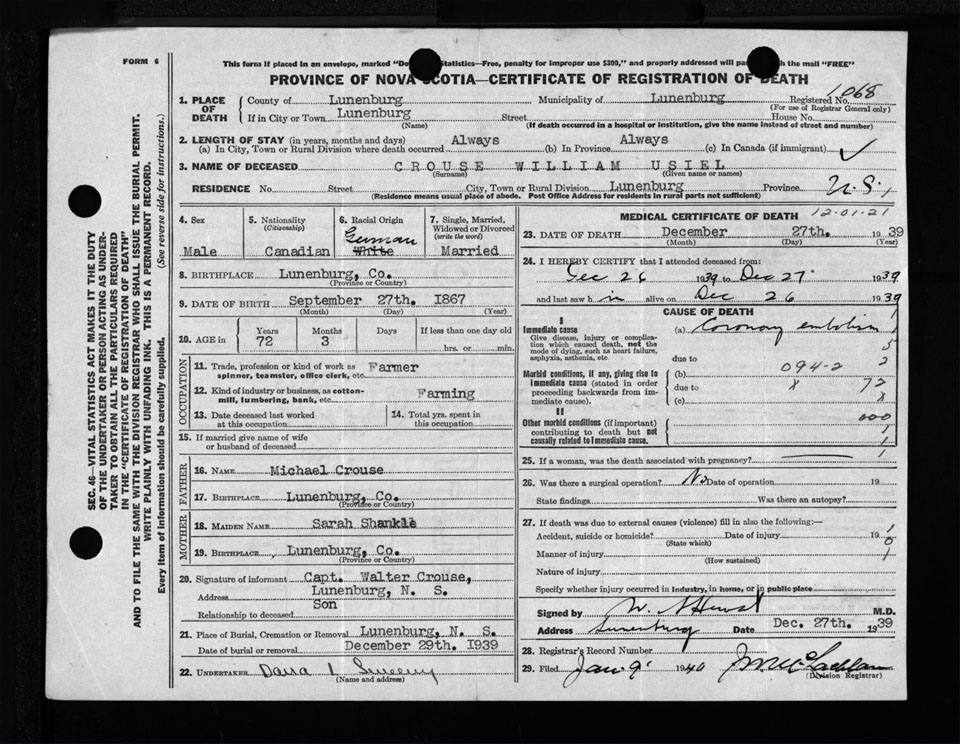 FORM 6
This form if placed in an envelope, marked "Do Statistics—Free, penalty for improper use $300," and properly addressed will pa the mail "FREE"
PROVINCE OF NOVA SCOTIA—CERTIFICATE OF REGISTRATION OF DEATH
1068
1. PLACE OF DEATH
County of Lunenburg Municipality of Lunenburg Registered No.
(For use of Registrar General only)
If in City or Town Lunenburg Street House No.
(Name) (If death occurred in a hospital or institution, give the name instead of street and number)
2. LENGTH OF STAY (in years, months and days)
(a) In City, Town or Rural Division where death occurred Always (b) In Province Always (c) In Canada (if immigrant)
3. NAME OF DECEASED CROUSE WILLIAM USIEL
(Surname) (Given name or names)
RESIDENCE No. Street City, Town or Rural Division Lunenburg Province N.S.
(Residence means usual place of abode. Post Office Address for residents in rural parts not sufficient)
4. Sex
Male
5. Nationality
(Citizenship)
Canadian
6. Racial Origin
German
White
7. Single, Married, Widowed or Divorced
(write the word)
Married
8. BIRTHPLACE Lunenburg, Co.
(Province or Country)
9. DATE OF BIRTH September 27th. 1867
(Month) (Day) (Year)
10. AGE in
Years Months Days If less than one day old
72 3 hrs. or min.
OCCUPATION
11. Trade, profession or kind of work as Farmer
spinner, teamster, office clerk, etc.
12. Kind of industry or business, as cotton-
mill, lumbering, bank, etc. Farming
13. Date deceased last worked
at this occupation
14. Total yrs. spent in
this occupation
15. If married give name of wife
or husband of deceased
FATHER
16. NAME Michael Crouse
17. BIRTHPLACE Lunenburg, Co.
(Province or Country)
MOTHER
18. MAIDEN NAME Sarah Shankle
19. BIRTHPLACE, Lunenburg, Co.
(Province or Country)
20. Signature of informant Capt. Walter Crouse,
Address Lunenburg, N. S.
Relationship to deceased Son
21. Place of Burial, Cremation or Removal Lunenburg, N. S.
Date of burial or removal December 29th. 1939
22. UNDERTAKER Dana L Sweeny
(Name and address)
MEDICAL CERTIFICATE OF DEATH
12-01-21
23. DATE OF DEATH December 27th. 1939
(Month) (Day) (Year)
24. I HEREBY CERTIFY that I attended deceased from:
Dec 26 1939 to Dec 27 1939
and last saw h im alive on Dec 26 1939
CAUSE OF DEATH
I
Immediate cause (a) Coronary embolism 1
Give disease, injury or complica-
tion which caused death, not the
mode of dying, such as heart failure,
asphyxia, asthenia, etc.
5
due to 2
Morbid conditions, if any, giving rise to
immediate cause (stated in order
proceeding backwards from im-
mediate cause).
(b) 094-2
due to X 72
(c) X
II
Other morbid conditions (if important)
contributing to death but not
causally related to immediate cause.
000
1
1
25. If a woman, was the death associated with pregnancy? 1
26. Was there a surgical operation? No Date of operation 19
State findings Was there an autopsy?
27. If death was due to external causes (violence) fill in also the following:—
1
Accident, suicide or homicide? Date of injury 19 0
(State which)
Manner of injury 1
(How sustained)
Nature of injury
Specify whether injury occurred in industry, in home, or in public place
Signed by M.D.
Address Lunenburg Date Dec. 27th. 1939
28. Registrar's Record Number
29. Filed Jan 9 1940
(Division Registrar)
SEC. 46—VITAL STATISTICS ACT MAKES IT THE DUTY
OF THE UNDERTAKER OR PERSON ACTING AS UNDER-
TAKER TO OBTAIN ALL THE PARTICULARS REQUIRED
IN THE "CERTIFICATE OF REGISTRATION OF DEATH"
AND TO FILE THE SAME WITH THE DIVISION REGISTRAR WHO SHALL ISSUE THE BURIAL PERMIT.
WRITE PLAINLY WITH UNFADING INK. THIS IS A PERMANENT RECORD.
Every item of information should be carefully supplied. (See reverse side for instructions.)